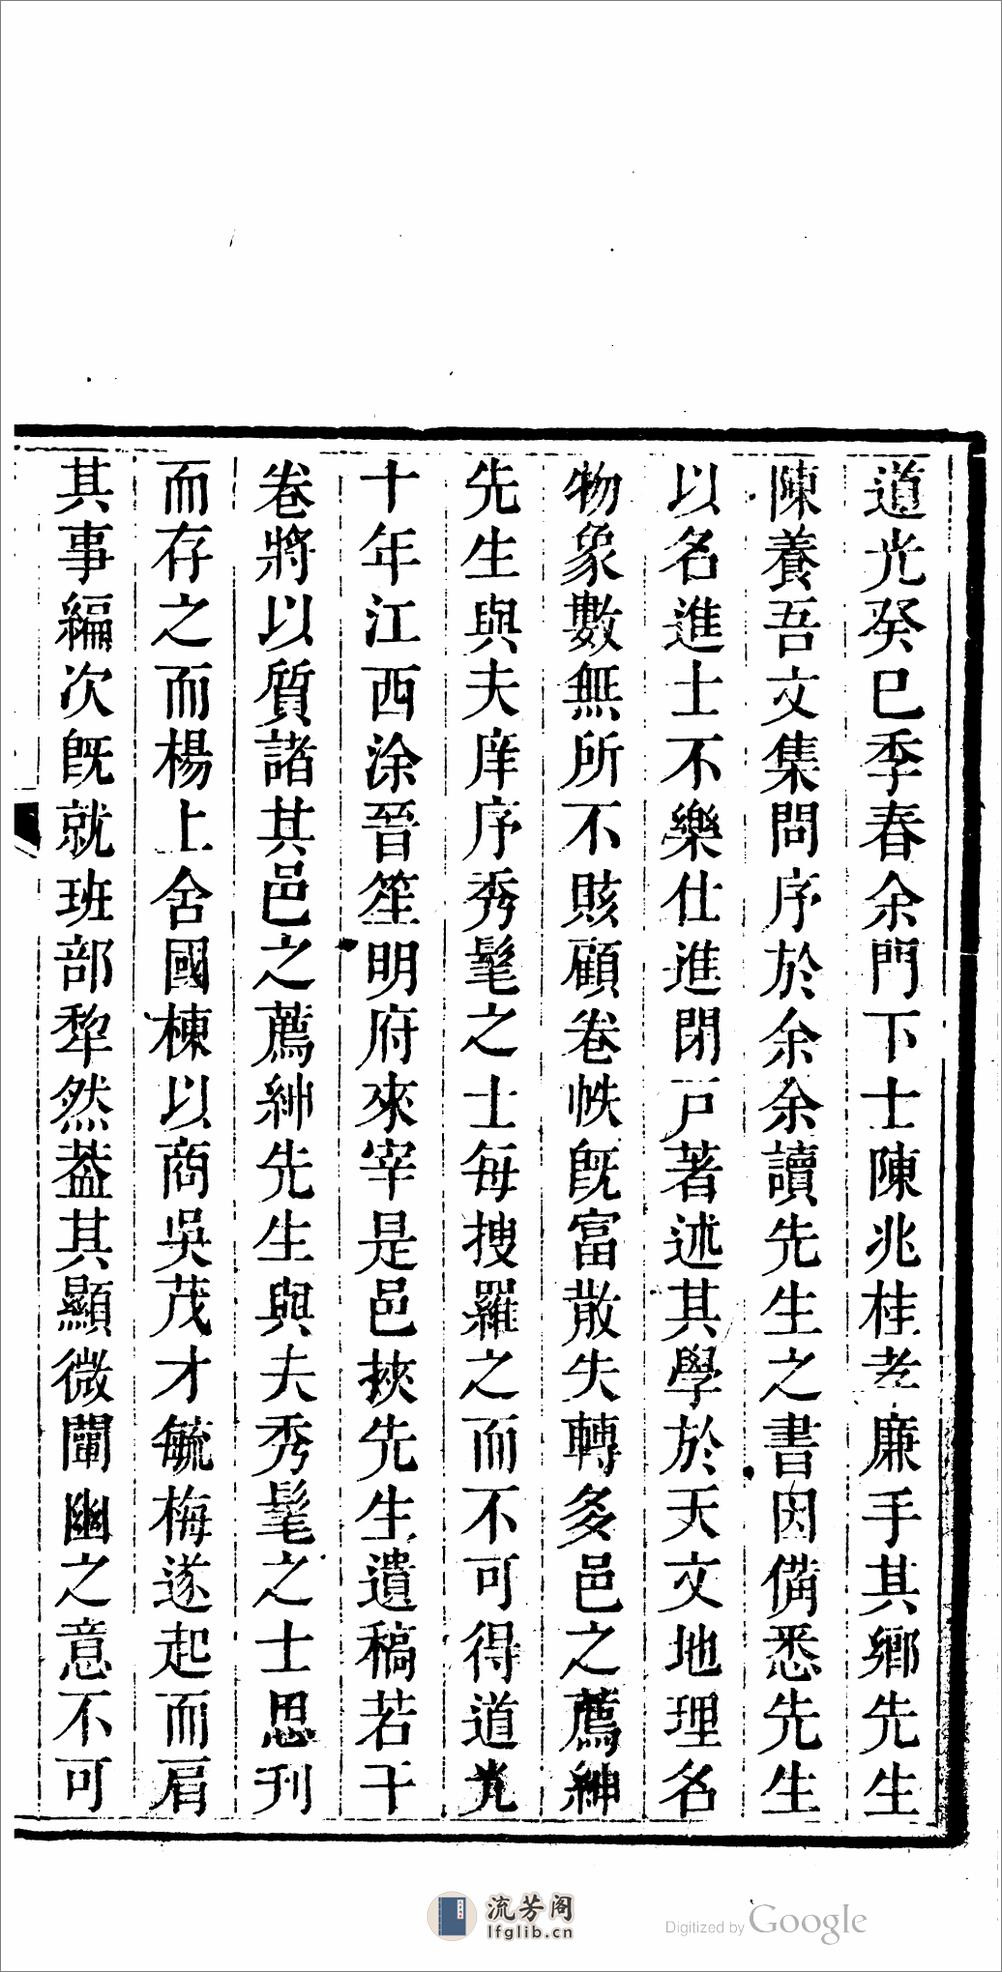 道光癸巳季春余門下士陳兆桂孝廉手其鄉先生
陳養吾文集問序於余余讀先生之書因備悉先生
以名進士不樂仕進閉戸著述其學於天文地理名
物象數無所不賅顧卷帙既富散失轉多邑之薦紳
先生與夫庠序秀髦之士每搜羅之而不可得道光
十年江西涂晉笙明府來宰是邑挾先生遺稿若干
卷將以質諸其邑之薦紳先生與夫秀髦之士思刊
而存之而楊上舍國棟以商吳茂才毓梅遂起而肩
其事編次既就班部犂然葢其顯微闡幽之意不可
流芳阁
lfglib.cn
Digitized by Google